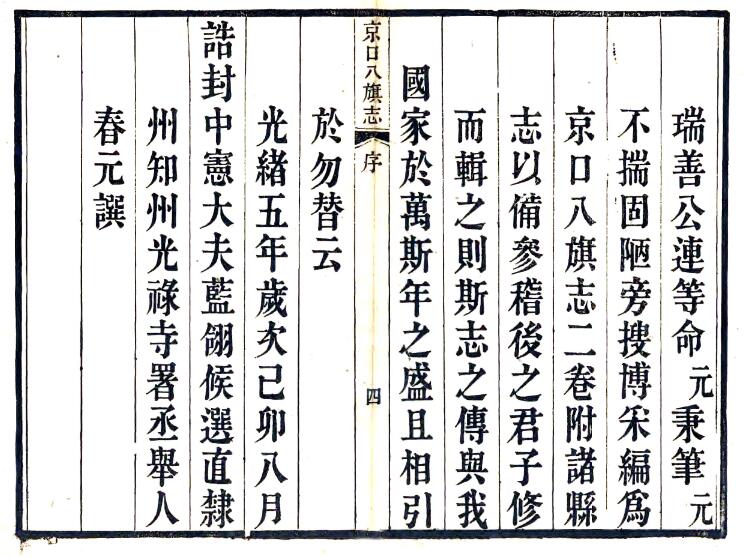 瑞善公連等命元秉筆元
不揣固陋旁搜博采編爲
京口八旗志二卷附諸縣
志以備參稽後之君子修
而輯之則斯志之傳與我
國家於萬斯年之盛且相引
京口八旗志 序 四
於勿替云
光緒五年歲次己卯八月
誥封中憲大夫藍翎候選直隸
州知州光祿寺署丞舉人
春元譔